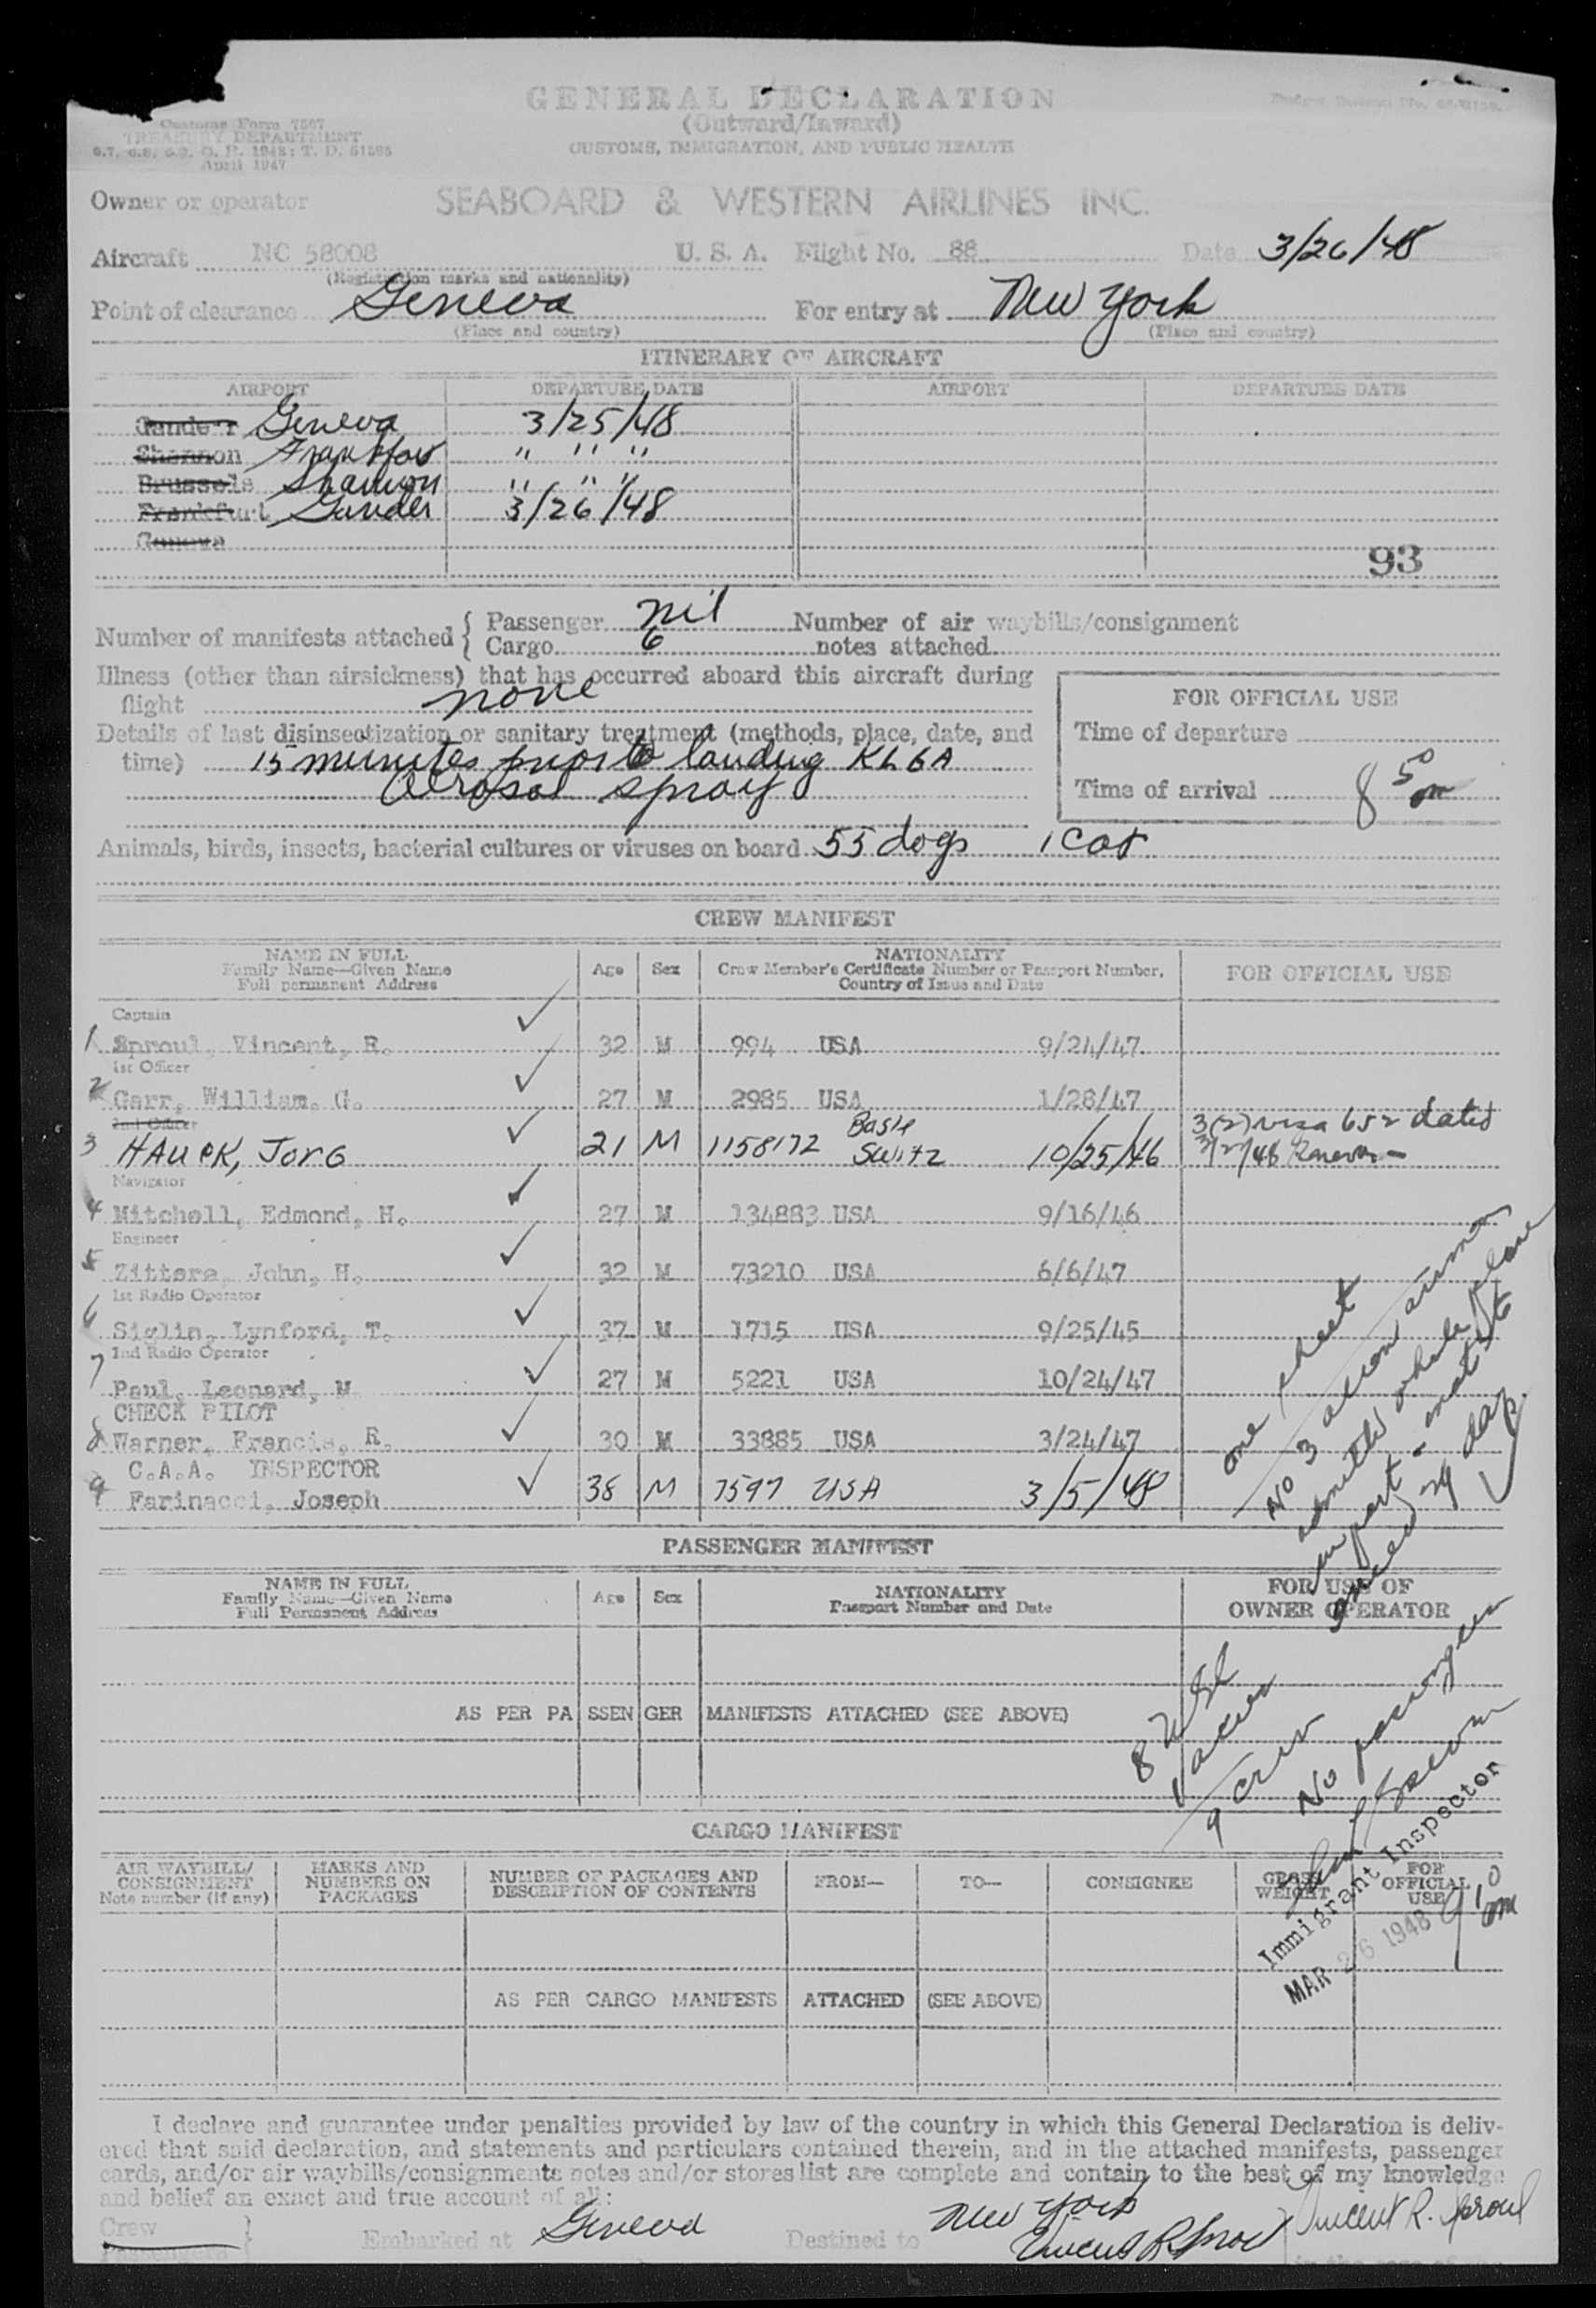 GENERAL DECLARATION
(Outward/Inward)
CUSTOMS, IMMIGRATION, AND PUBLIC HEALTH
Customs Form 7507
TREASURY DEPARTMENT
April 1947
Owner or operator SEABOARD & WESTERN AIRLINES INC.
Aircraft NC 58008 U. S. A. Flight No. 88 Date 3/26/48
(Registration marks and nationality)
Point of clearance Geneva For entry at New York
(Place and country) (Place and country)
ITINERARY OF AIRCRAFT
AIRPORT DEPARTURE DATE AIRPORT DEPARTURE DATE
Gander Geneva 3/25/48
Shannon " " "
Brussels Shannon " " "
Frankfurt Gander 3/26/48
Geneva
93
Number of manifests attached { Passenger nil Number of air waybills/consignment
Cargo 6 notes attached
Illness (other than airsickness) that has occurred aboard this aircraft during
flight none
FOR OFFICIAL USE
Details of last disinsectization or sanitary treatment (methods, place, date, and
time) 15 minutes prior to landing KLGA
aerosol spray
Time of departure
Time of arrival 8 50 am
Animals, birds, insects, bacterial cultures or viruses on board 55 dogs 1 cat
CREW MANIFEST
NAME IN FULL
Family Name—Given Name
Full permanent Address
Age Sex
NATIONALITY
Crew Member's Certificate Number or Passport Number,
Country of Issue and Date
FOR OFFICIAL USE
Captain
1 Sproul, Vincent, R. 32 M 994 USA 9/24/47
1st Officer
2 Garr, William. G. 27 M 2985 USA 1/28/47
2nd Officer
3 HAUCK, JORG 21 M 1158172 Basle Switz 10/25/46 3(2) visa 652 dated
Navigator
4 Mitchell, Edmond, H. 27 M 134883 USA 9/16/46
Engineer
5 Zittera, John, H. 32 M 73210 USA 6/6/47
1st Radio Operator
6 Siglin, Lynford, T. 37 M 1715 USA 9/25/45
2nd Radio Operator
7 Paul, Leonard, M 27 M 5221 USA 10/24/47
CHECK PILOT
8 Warner, Francis, R. 30 M 33885 USA 3/24/47
C.A.A. INSPECTOR
9 Farinacci, Joseph 38 M 7597 USA 3/5/48
one sheet
No 3
admitted while plane
in port - not to
exceed 29 days
PASSENGER MANIFEST
NAME IN FULL
Family Name—Given Name
Full Permanent Address
Age Sex
NATIONALITY
Passport Number and Date
FOR USE OF
OWNER OPERATOR
AS PER PASSENGER MANIFESTS ATTACHED (SEE ABOVE)
9 crew
No passengers
Immigrant Inspector
MAR 26 1948
9 10 am
CARGO MANIFEST
AIR WAYBILL/
CONSIGNMENT
Note number (if any)
MARKS AND
NUMBERS ON
PACKAGES
NUMBER OF PACKAGES AND
DESCRIPTION OF CONTENTS
FROM—
TO—
CONSIGNEE
GROSS
WEIGHT
FOR
OFFICIAL
USE
AS PER CARGO MANIFESTS ATTACHED (SEE ABOVE)
I declare and guarantee under penalties provided by law of the country in which this General Declaration is deliv-
ered that said declaration, and statements and particulars contained therein, and in the attached manifests, passenger
cards, and/or air waybills/consignments notes and/or stores list are complete and contain to the best of my knowledge
and belief an exact and true account of all:
Crew
Passengers } Embarked at Geneva Destined to New York
Vincent R. Sproul Vincent R. Sproul